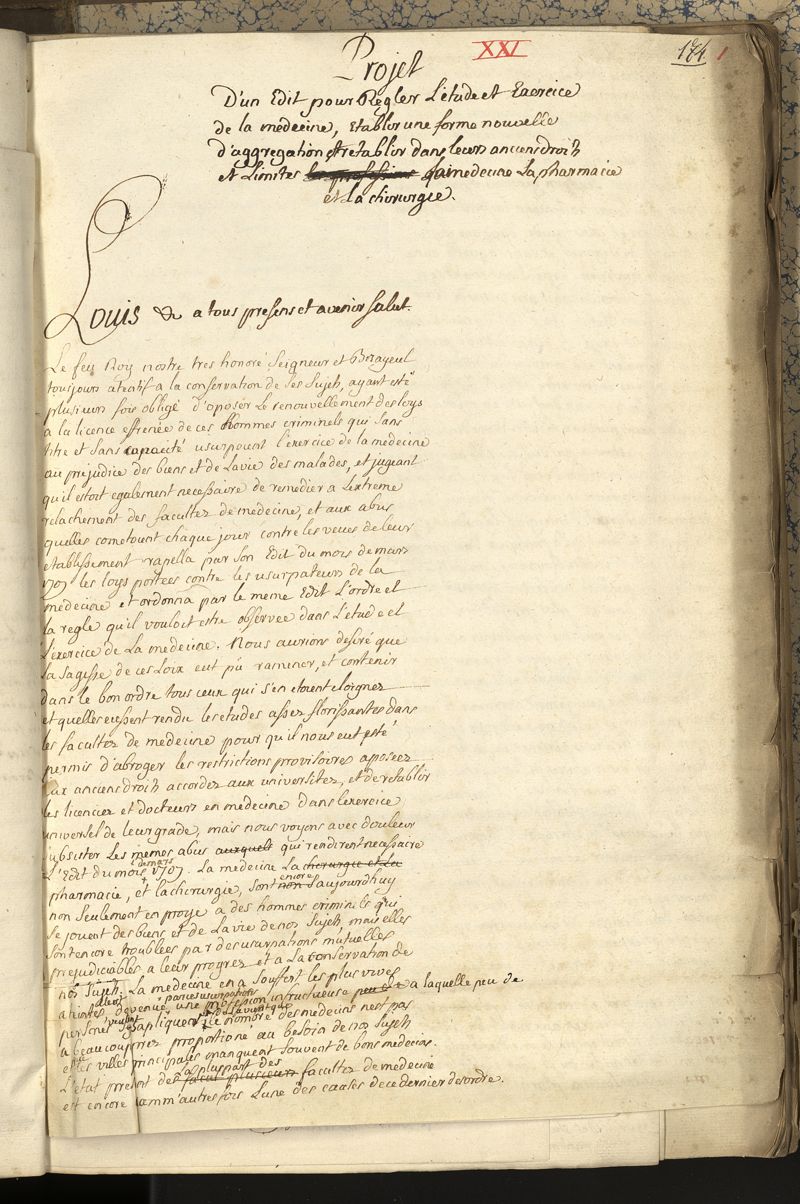 XXI
184 1
Projet
D'un Edit pour Regler L'étude et Exercice
de la medecine, Etablir une forme nouvelle
d'aggregation et retablir dans leurs anciens droits
et Limites la medecine La pharmacie
et La chirurgie.
Louis &c a tous presens et avenir Salut.
Le feu Roy nostre tres honoré Seigneur et Bisayeul
tousjours atentif a la conservation de ses Sujets, ayant esté
plusieurs fois obligé d'oposer Le renouvellement des loys
a la licence effrenée de ces hommes criminels qui sans
titre et sans capacité usurpount l'exercice de la medecine
au prejudice des biens et de La vie des malades, et jugeant
qu'il estoit egalement necessaire de remedier a L'extreme
relachement des facultez de medecine, et aux abus
quelles cometount chaque jour contre les veues de leur
etablissement rapella par son Edit du mois de mars
1707 les loys portées contre les usurpateurs de la
medecine et ordonna par le meme Edit L'ordre et
la regle qu'il vouloit estre observée dans L'étude et
L'exercice de La medecine. Nous aurions desiré que
La Sagesse de ces Loix eut pû ramener, et contenir
dans le bon ordre tous ceux qui s'en etoient eloignez
et quelles eussent rendu les etudes assez florissantes dans
les facultez de medecine pour qu'il nous eut esté
permis d'abroger les restrictions provisoires aposeez
aux anciens droits accordez aux universitez, et de retablir
les licenciez et docteurs en medecine dans l'exercice
universel de leur grade, mais nous voyons avec douleur
subsister Les memes abus auxquels qui rendirent necessaire
L'Edit du mois de mars 1707. La medecine La chirurgie et La
pharmacie, et la chirurgie, sont encore non s aujourdhuy
non seulement en proye a des hommes criminels qui
se jouent des biens et de La vie de nos Sujets, mais elles
sont encore troublées par des usurpations mutuelles
prejudiciables a leur progrez et a La conservation de
nos Sujets. La medecine en a souffert les plus vives
ateintes, devenue par ces usurpations une profession infructueuse a laquelle peu de
personnes veulent s'apliquer le nombre des medecins nest pas
a beaucoup prez proportioné au besoin de nos Sujets
et les villes principales manquent souvent de bons medecins.
L'état present de la pluspart des facul plusieurs facultez de medecine
est encore comm' autres fois L'une des causes de ce dernier desordre.